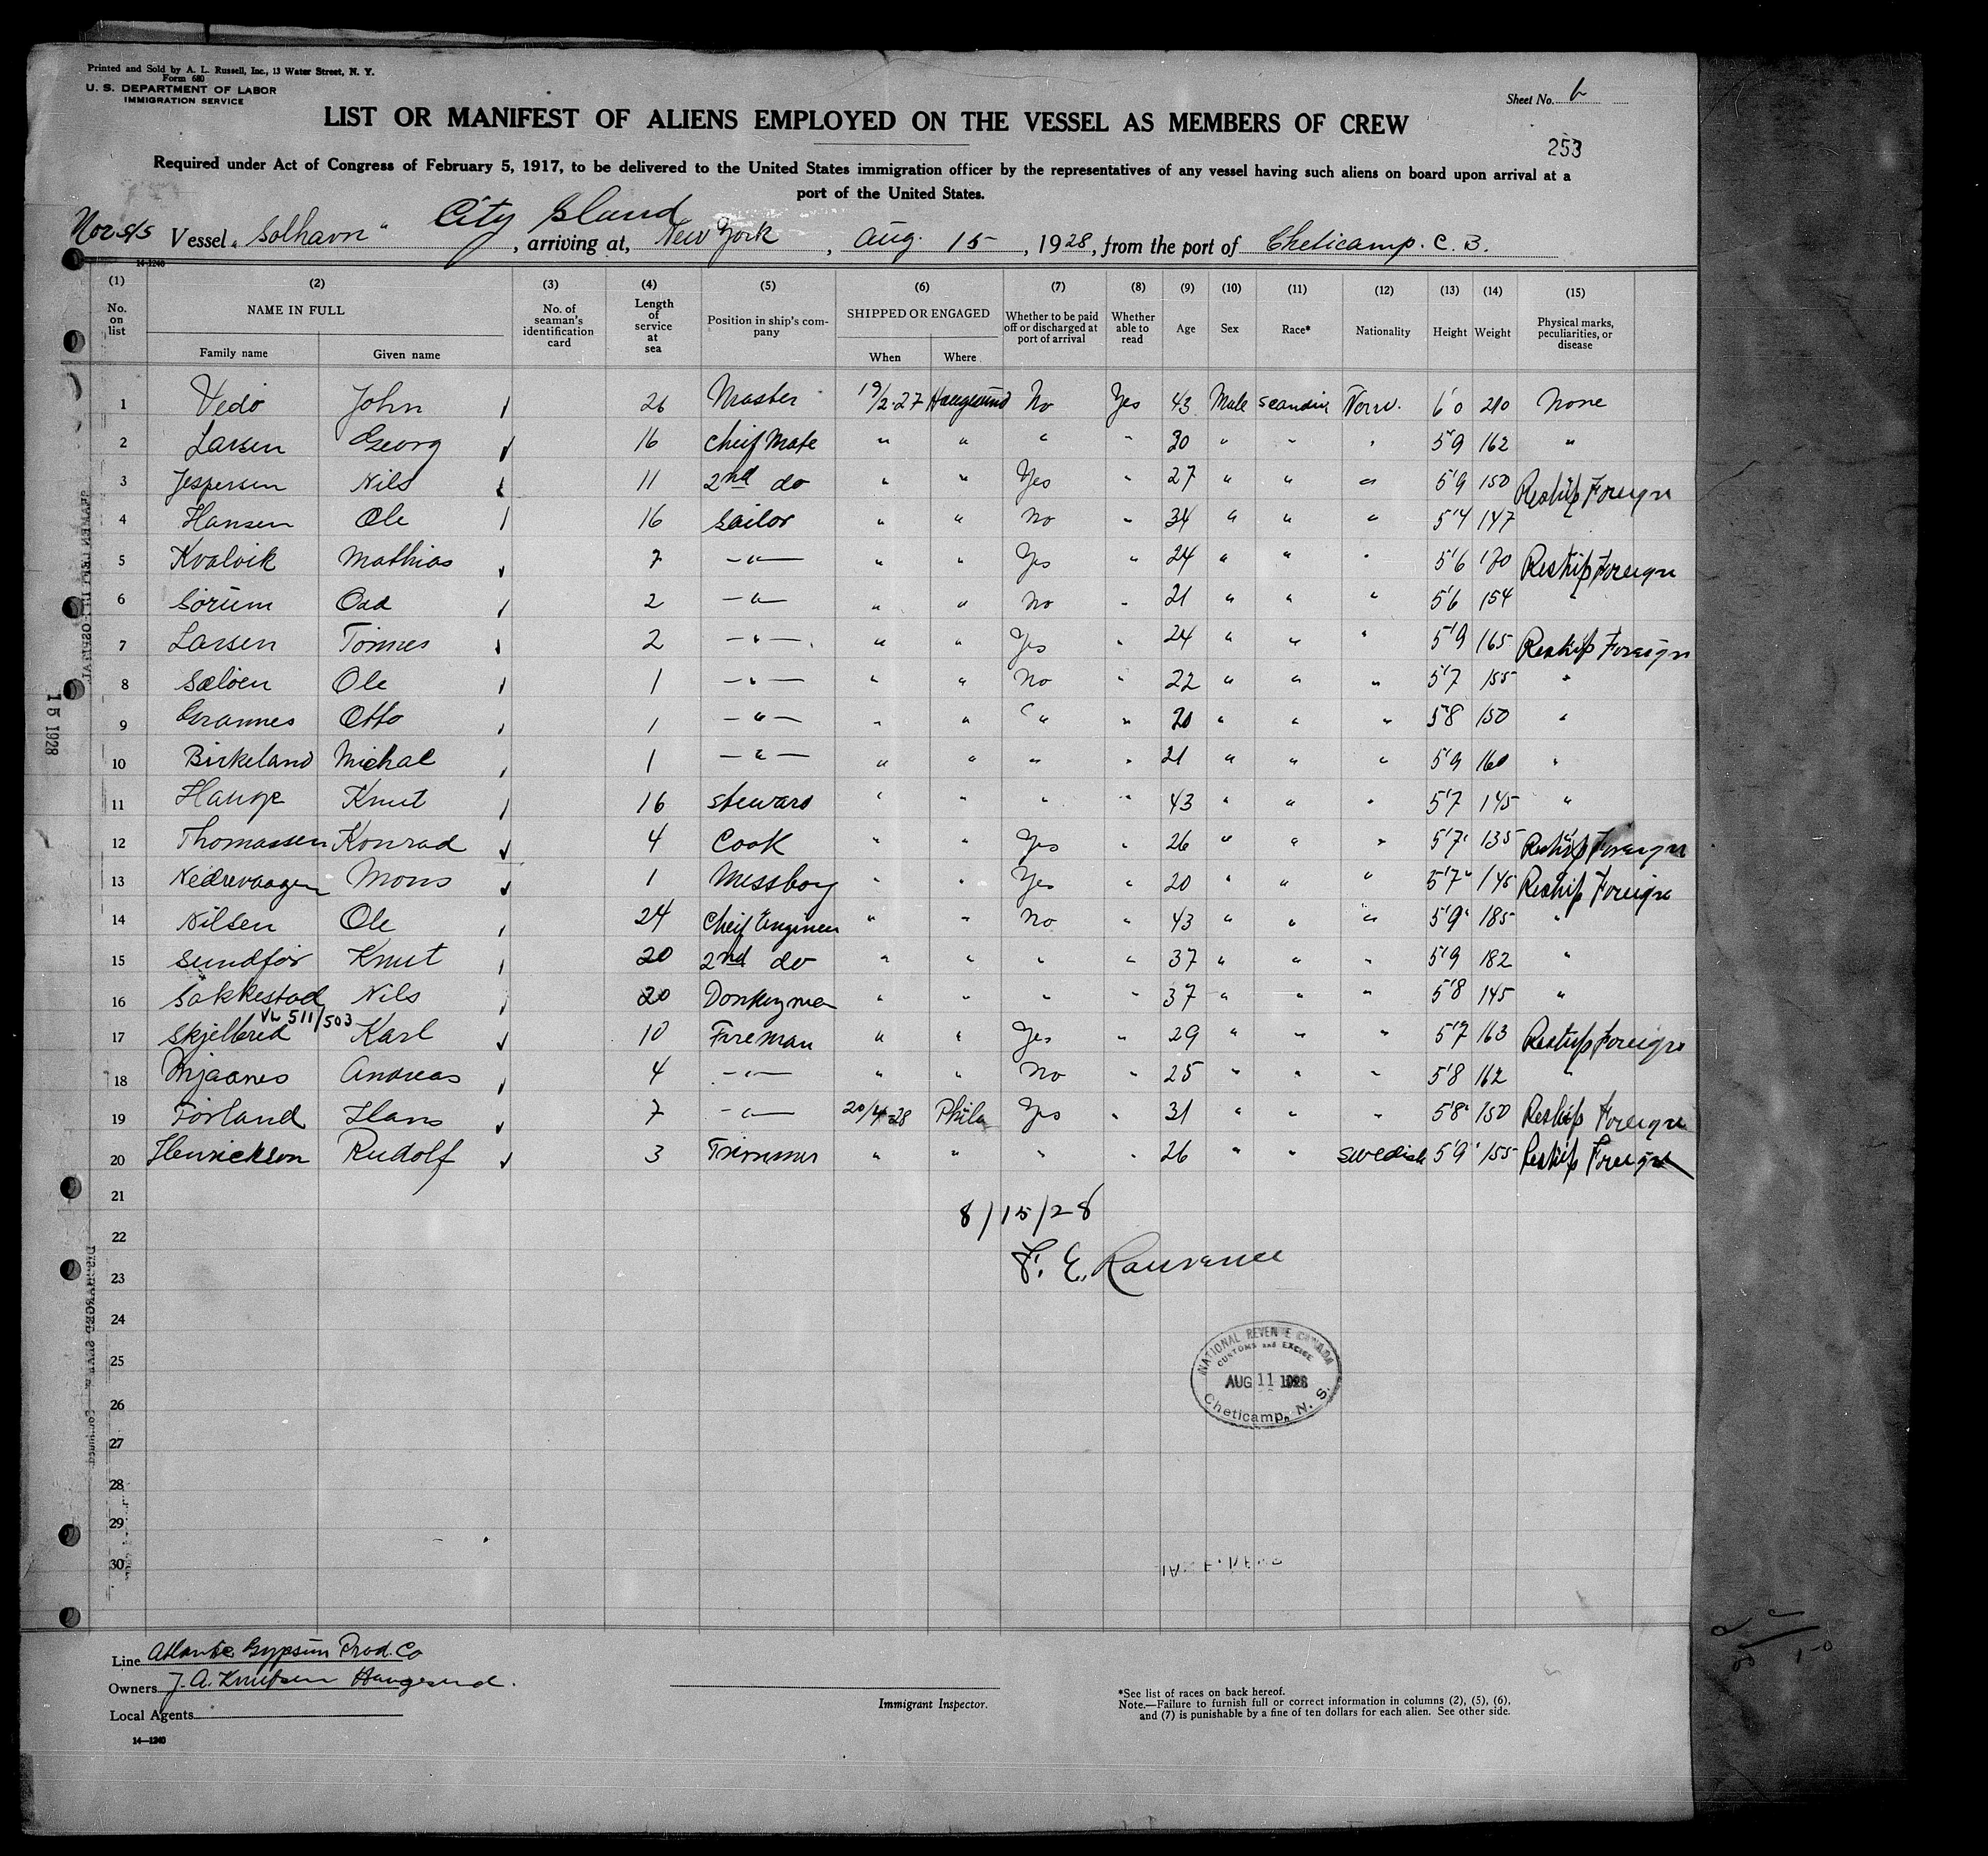 Printed and Sold by A. L. Russell, Inc., 13 Water Street, N. Y.
Form 680
U. S. DEPARTMENT OF LABOR
IMMIGRATION SERVICE
Sheet No.
LIST OR MANIFEST OF ALIENS EMPLOYED ON THE VESSEL AS MEMBERS OF CREW
253
Required under Act of Congress of February 5, 1917, to be delivered to the United States immigration officer by the representatives of any vessel having such aliens on board upon arrival at a
port of the United States.
City Island
Nor S/S Vessel "Solhavn", arriving at, New York, Aug. 15, 1928, from the port of Cheticamp. C. B.
14-1240
(1) (2) (3) (4) (5) (6) (7) (8) (9) (10) (11) (12) (13) (14) (15)
No. on list NAME IN FULL Family name Given name No. of seaman's identification card Length of service at sea Position in ship's company SHIPPED OR ENGAGED When Where Whether to be paid off or discharged at port of arrival Whether able to read Age Sex Race* Nationality Height Weight Physical marks, peculiarities, or disease
1 Vedö John 26 Master 19/2-27 Haugesund No Yes 43 Male Scandin Norw. 6'0 210 None
2 Larsen Georg 16 Cheif Mate " " " " 30 " " " 5'9 162 "
3 Jespersen Nils 11 2nd do " " Yes " 27 " " " 5'9 150 Reship Foreign
4 Hansen Ole 16 Sailor " " No " 34 " " " 5'4 147 "
5 Kvalvik Mathias 7 -"- " " Yes " 24 " " " 5'6 170 Reship Foreign
6 Sörum Odd 2 -"- " " No " 21 " " " 5'6 154 "
7 Larsen Tönnes 2 -"- " " Yes " 24 " " " 5'9 165 Reship Foreign
8 Sæloen Ole 1 -"- " " No " 22 " " " 5'7 155 "
9 Grannes Otto 1 -"- " " " " 20 " " " 5'8 150 "
10 Birkeland Michal 1 -"- " " " " 21 " " " 5'9 160 "
11 Hauge Knut 16 Steward " " " " 43 " " " 5'7 145 "
12 Thomassen Konrad 4 Cook " " Yes " 26 " " " 5'7" 135 Reship Foreign
13 Nedrevaagen Mons 1 Messboy " " Yes " 20 " " " 5'7" 145 Reship Foreign
14 Nilsen Ole 24 Cheif Engineer " " No " 43 " " " 5'9" 185 "
15 Sundför Knut 20 2nd do " " " " 37 " " " 5'9 182 "
16 Sakkestad Nils 20 Donkeyman " " " " 37 " " " 5'8 145 "
511/503
17 Skjelbred Karl 10 Fireman " " Yes " 29 " " " 5'7 163 Reship Foreign
18 Mjaanes Andreas 4 -"- " " No " 25 " " " 5'8 162 "
19 Förland Hans 7 -"- 20/4-28 Phila Yes " 31 " " " 5'8" 150 Reship Foreign
20 Henrickson Rudolf 3 Trimmer " " " " 26 " " Swedish 5'9" 155 Reship Foreign
21
22
23
24
25
26
27
28
29
30
8/15/28
F. E.
NATIONAL REVENUE CANADA
CUSTOMS and EXCISE
AUG 11 1928
Cheticamp, N. S.
15 1928
Line Atlantic Gypsum Prod. Co
Owners J. A. Knutsen Haugesund.
Local Agents
Immigrant Inspector.
*See list of races on back hereof.
Note.—Failure to furnish full or correct information in columns (2), (5), (6),
and (7) is punishable by a fine of ten dollars for each alien. See other side.
14—1240